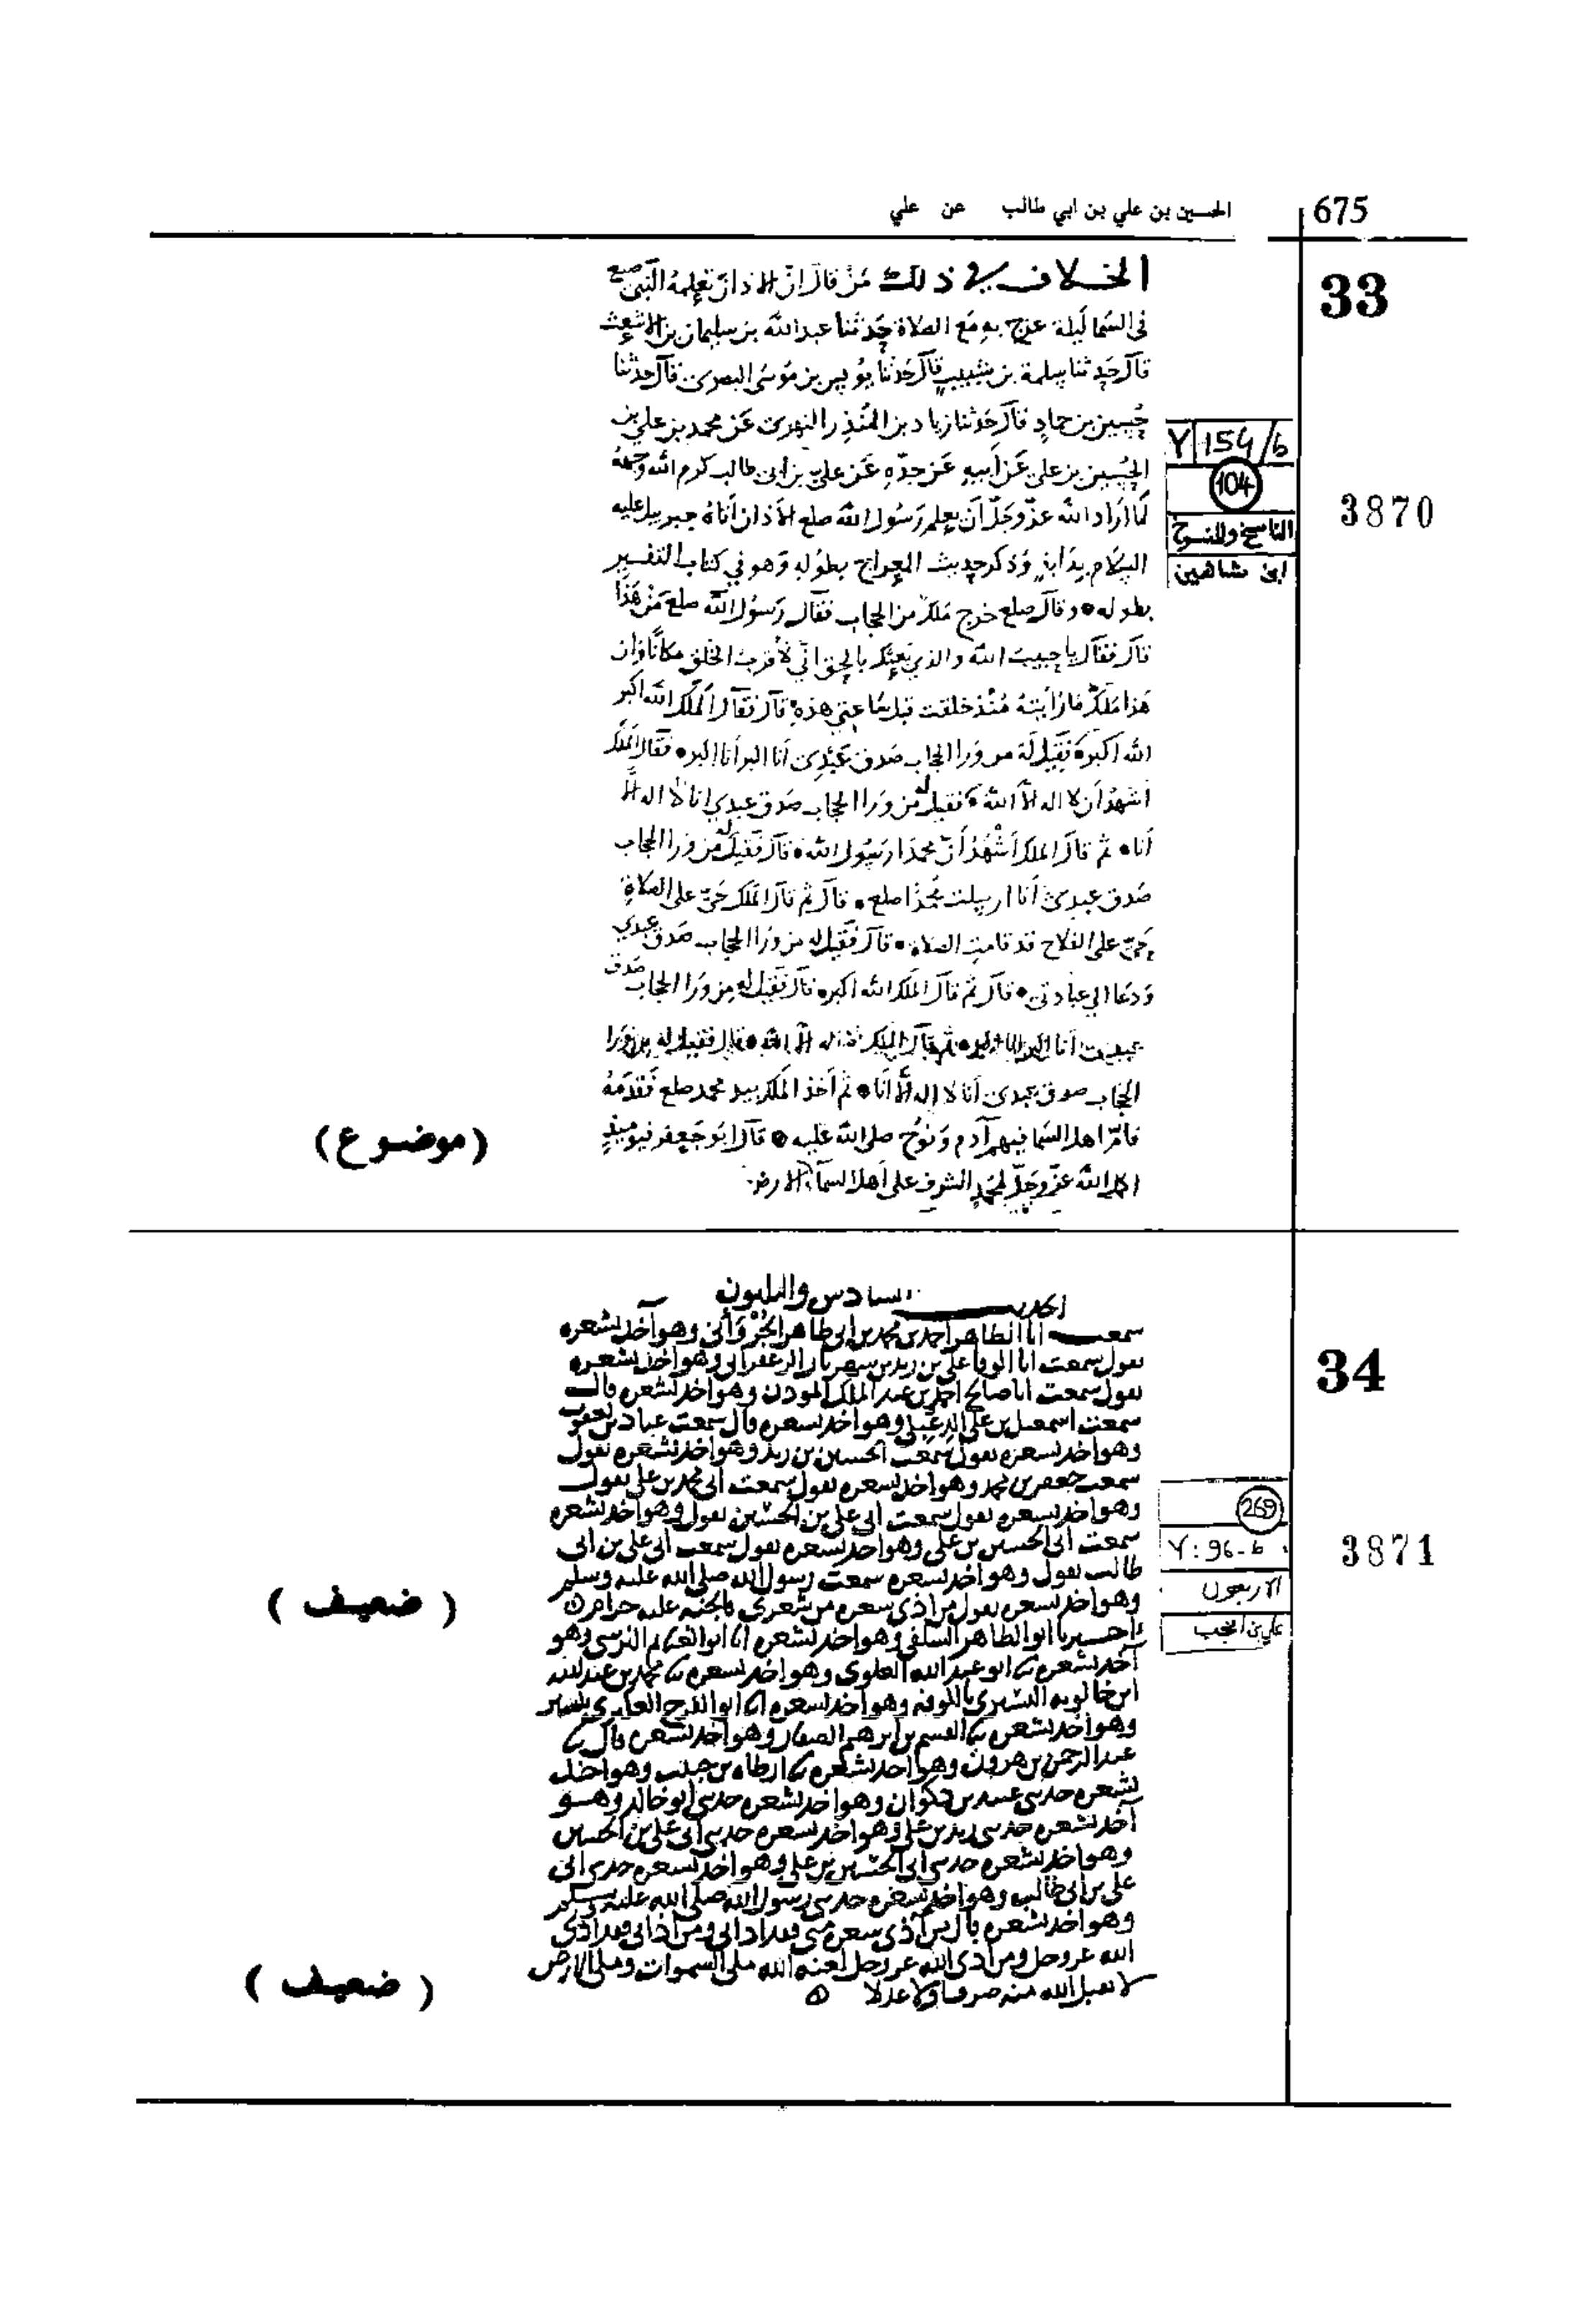 675
الحسين بن علي بن ابي طالب عن علي
33
الخلاف في ذلك مَن قال ان الاذان تعلمه النبي صلع
في السما ليلة عرج به مع الصلاة حدثنا عبد الله بن سليمان بن الاشعث
قال حدثنا سلمة بن شبيب قال حدثنا يونس بن موسى البصري قال حدثنا
حسين بن حماد قال حدثنا زياد بن المنذر النهدي عن محمد بن علي بن
الحسين بن علي عن أبيه عن جده عن علي بن ابي طالب كرم الله وجهه
لما اراد الله عز وجل أن يعلم رسول الله صلع الأذان أتاه جبريل عليه
السلام بدابة وذكر حديث المعراج بطوله وهو في كتاب التفسير
بطوله • وقال صلع خرج ملك من الحجاب فقال رسول الله صلع من هذا
قال فقال يا حبيب الله والذي بعثك بالحق اني لأقرب الخلق مكانا وان
هذا ملك ما رأيته منذ خلقت قبل ساعتي هذه قال فقال الملك الله اكبر
الله اكبر • فقيل له من ورا الحجاب صدق عبدي أنا اكبر أنا اكبر • فقال الملك
اشهد أن لا اله الا الله • فقيل له من ورا الحجاب صدق عبدي انا لا اله الا
أنا • ثم قال الملك أشهد أن محمدا رسول الله • قال فقيل له من ورا الحجاب
صدق عبدي أنا ارسلت محمدا صلع • قال ثم قال الملك حي على الصلاة
حي على الفلاح قد قامت الصلاة • قال فقيل له من ورا الحجاب صدق عبدي
ودعا الي عبادتي • قال ثم قال الملك الله اكبر • قال فقيل له من ورا الحجاب صدق
عبدي أنا اكبر انا اكبر • ثم قال الملك لا اله الا الله • قال فقيل له من ورا
الحجاب صدق عبدي أنا لا اله الا أنا • ثم أخذ الملك بيد محمد صلع فقدمه
فأم اهل السما فيهم آدم ونوح صلى الله عليه • قال ابو جعفر فيومئذ
اكمل الله عز وجل لمحمد الشرف على أهل السماء والارض
Y 154/b
104
الناسخ والمنسوخ
ابن شاهين
3870
(موضوع)
الحديث السادس والثلثون
سمعت ابا الطاهر احمد بن محمد بن ابي طاهر وهو آخذ بشعره
يقول سمعت ابا الوفا علي بن زيد بن شهريار الزعفراني وهو آخذ بشعره
يقول سمعت ابا صالح احمد بن عبد الملك المؤذن وهو اخذ بشعره قال
سمعت اسمعيل بن علي وهو اخذ بشعره قال سمعت عباد بن يعقوب
وهو اخذ بشعره يقول سمعت الحسين بن زيد وهو اخذ بشعره يقول
سمعت جعفر بن محمد وهو اخذ بشعره يقول سمعت ابي محمد بن علي يقول
وهو اخذ بشعره يقول سمعت ابي علي بن الحسين يقول وهو اخذ بشعره
سمعت ابي الحسين بن علي وهو اخذ بشعره يقول سمعت ابي علي بن ابي
طالب يقول وهو اخذ بشعره سمعت رسول الله صلى الله عليه وسلم
وهو اخذ بشعره يقول من اذى شعره من شعري فالجنة عليه حرام
اخبرنا ابو الطاهر السلفي وهو اخذ بشعره انا ابو الغنائم النرسي وهو
آخذ بشعره ابو عبد الله العلوي وهو اخذ بشعره محمد بن عبد الله
بالكوفة وهو اخذ بشعره ابو الفرج
وهو اخذ بشعره القسم بن ابرهيم الصفار وهو اخذ بشعره قال
عبد الرحمن بن هرون وهو اخذ بشعره ارطاه بن حبيب وهو اخذ
بشعره حدثني عبيد بن ذكوان وهو اخذ بشعره حدثني ابو خالد وهو
آخذ بشعره حدثني زيد بن علي وهو اخذ بشعره حدثني ابي علي بن الحسين
وهو اخذ بشعره حدثني ابي الحسين بن علي وهو اخذ بشعره حدثني ابي
علي بن ابي طالب وهو اخذ بشعره حدثني رسول الله صلى الله عليه وسلم
وهو اخذ بشعره قال من آذى شعرة مني فقد اذاني ومن اذاني فقد اذى
الله عز وجل ومن آذى الله عز وجل لعنه الله ملى السموات وملى الارض
لا يقبل الله منه صرفا ولا عدلا
34
269
Y: 96-b
الاربعون
3871
( ضعيف )
( ضعيف )